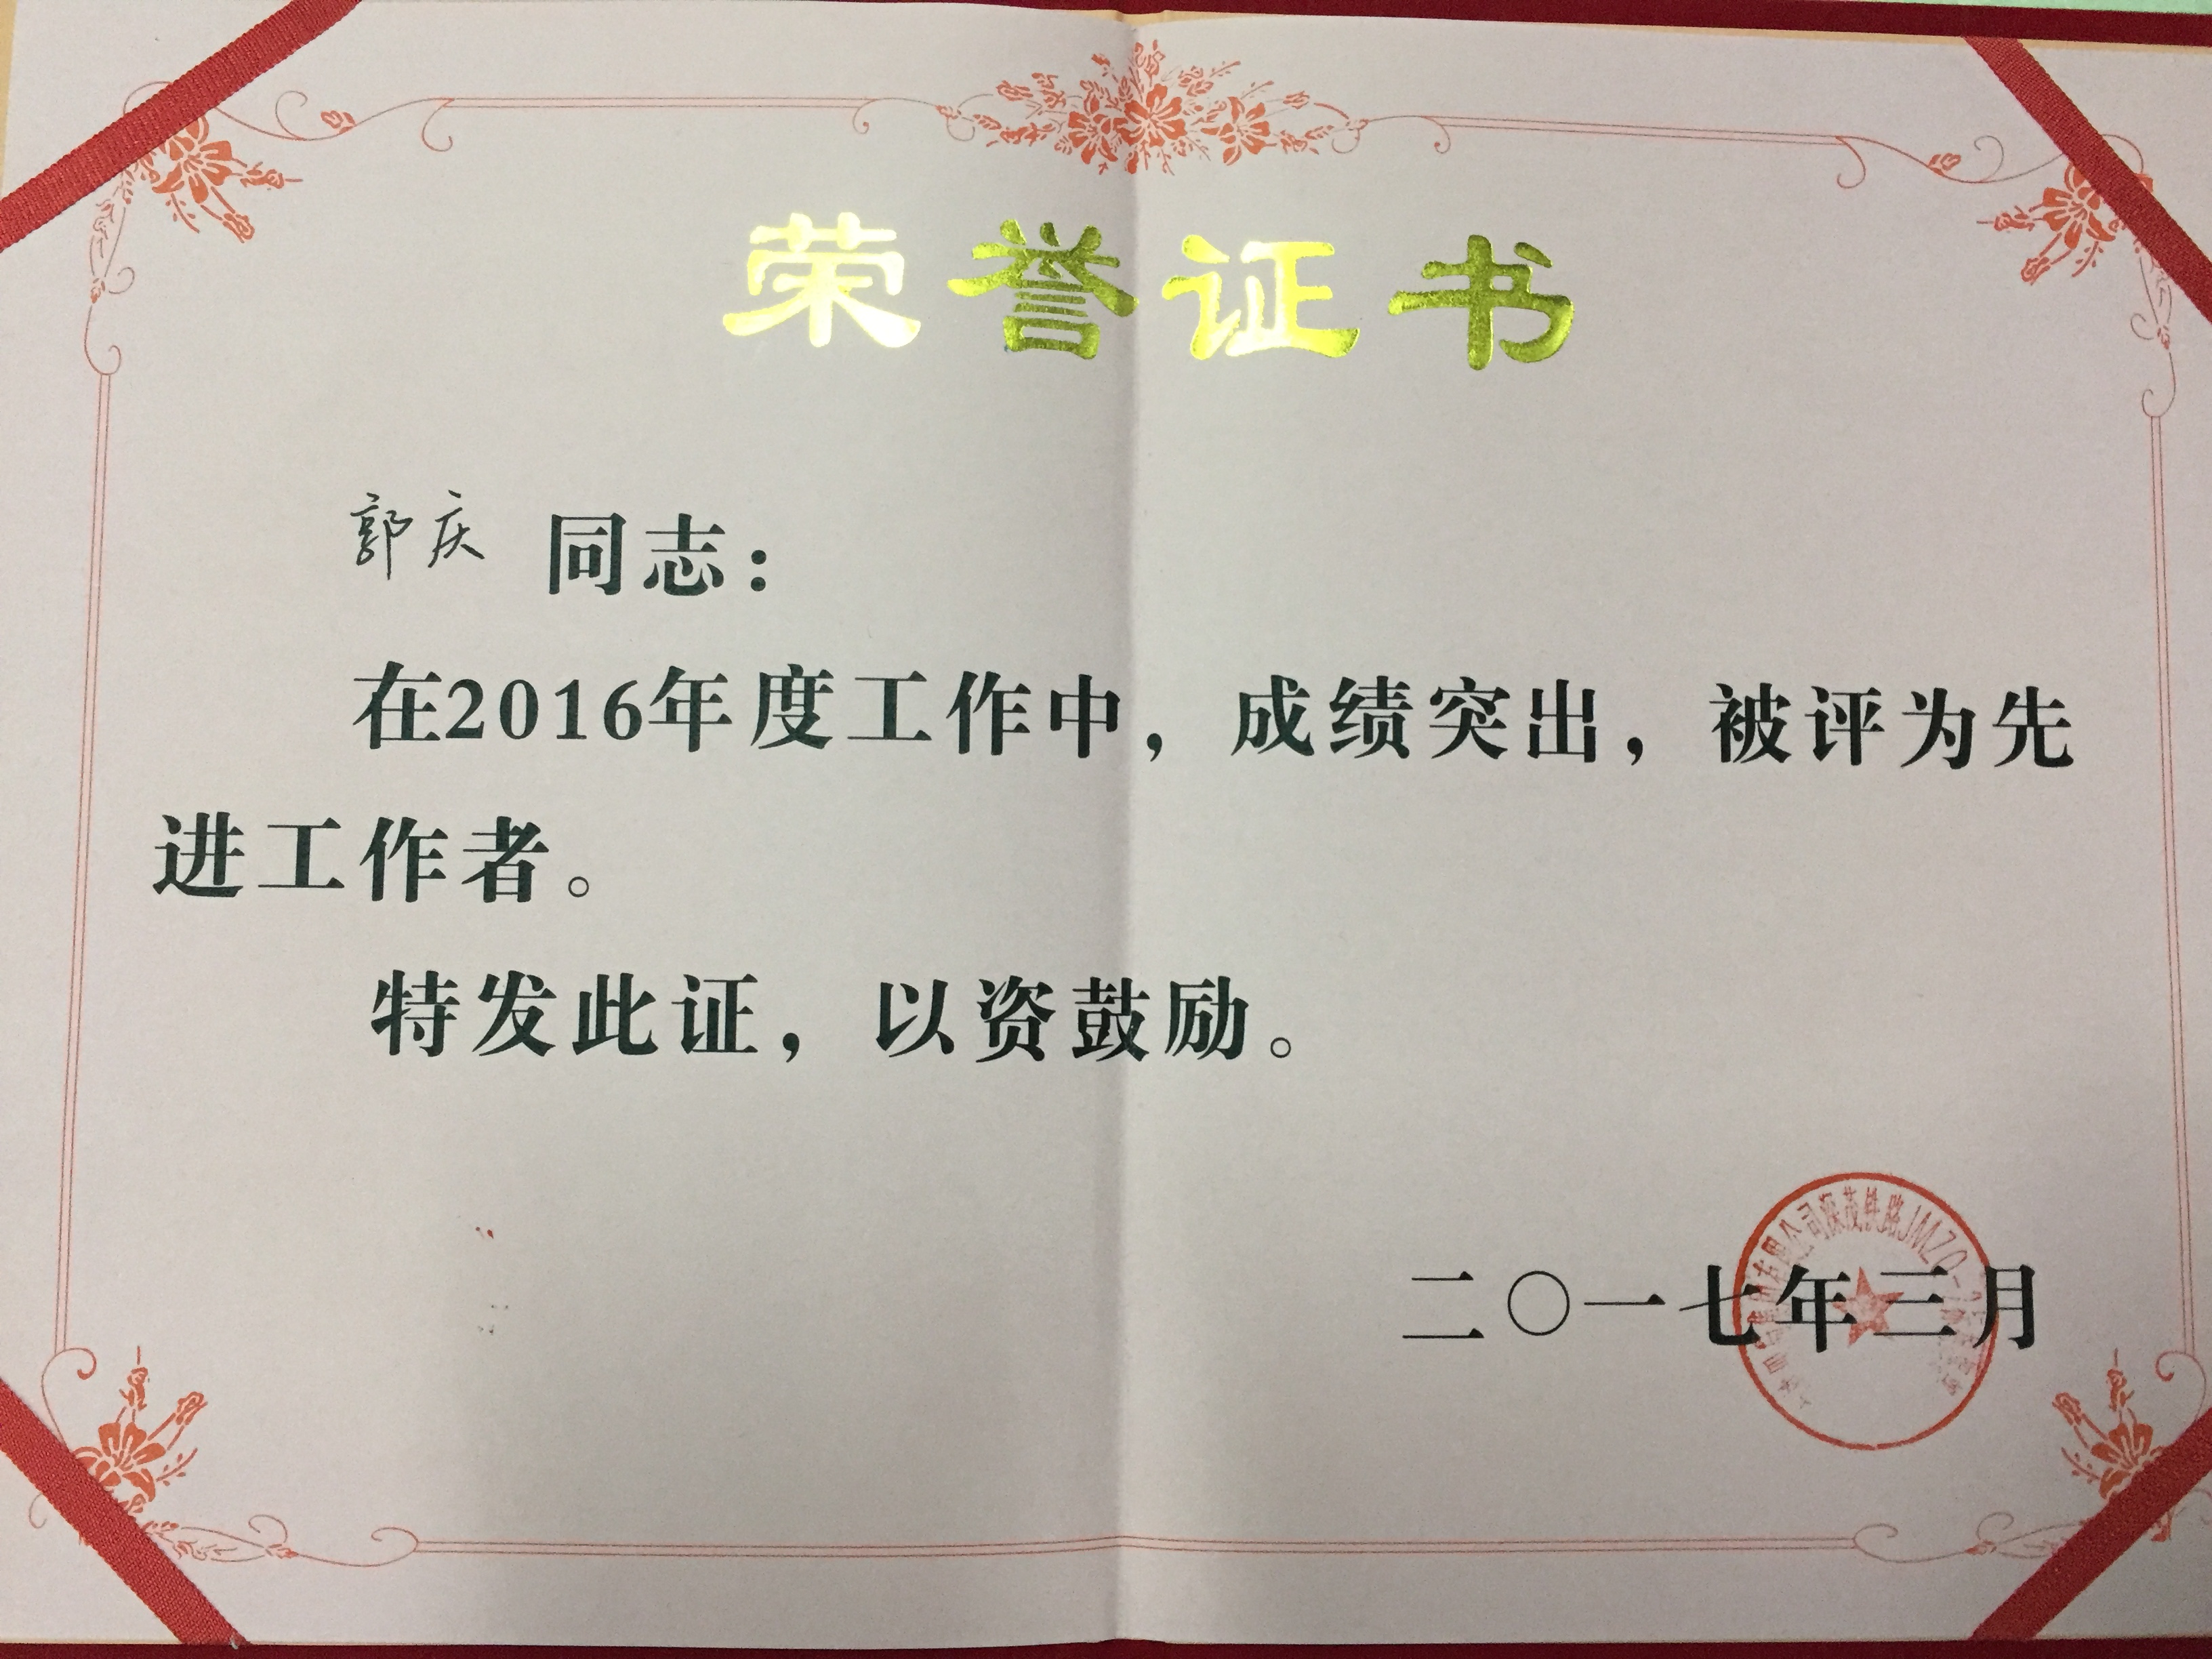 荣誉证书
郭庆 同志：
在2016年度工作中，成绩突出，被评为先
进工作者。
特发此证，以资鼓励。
二〇一七年三月
公司深茂铁路JMZQ-